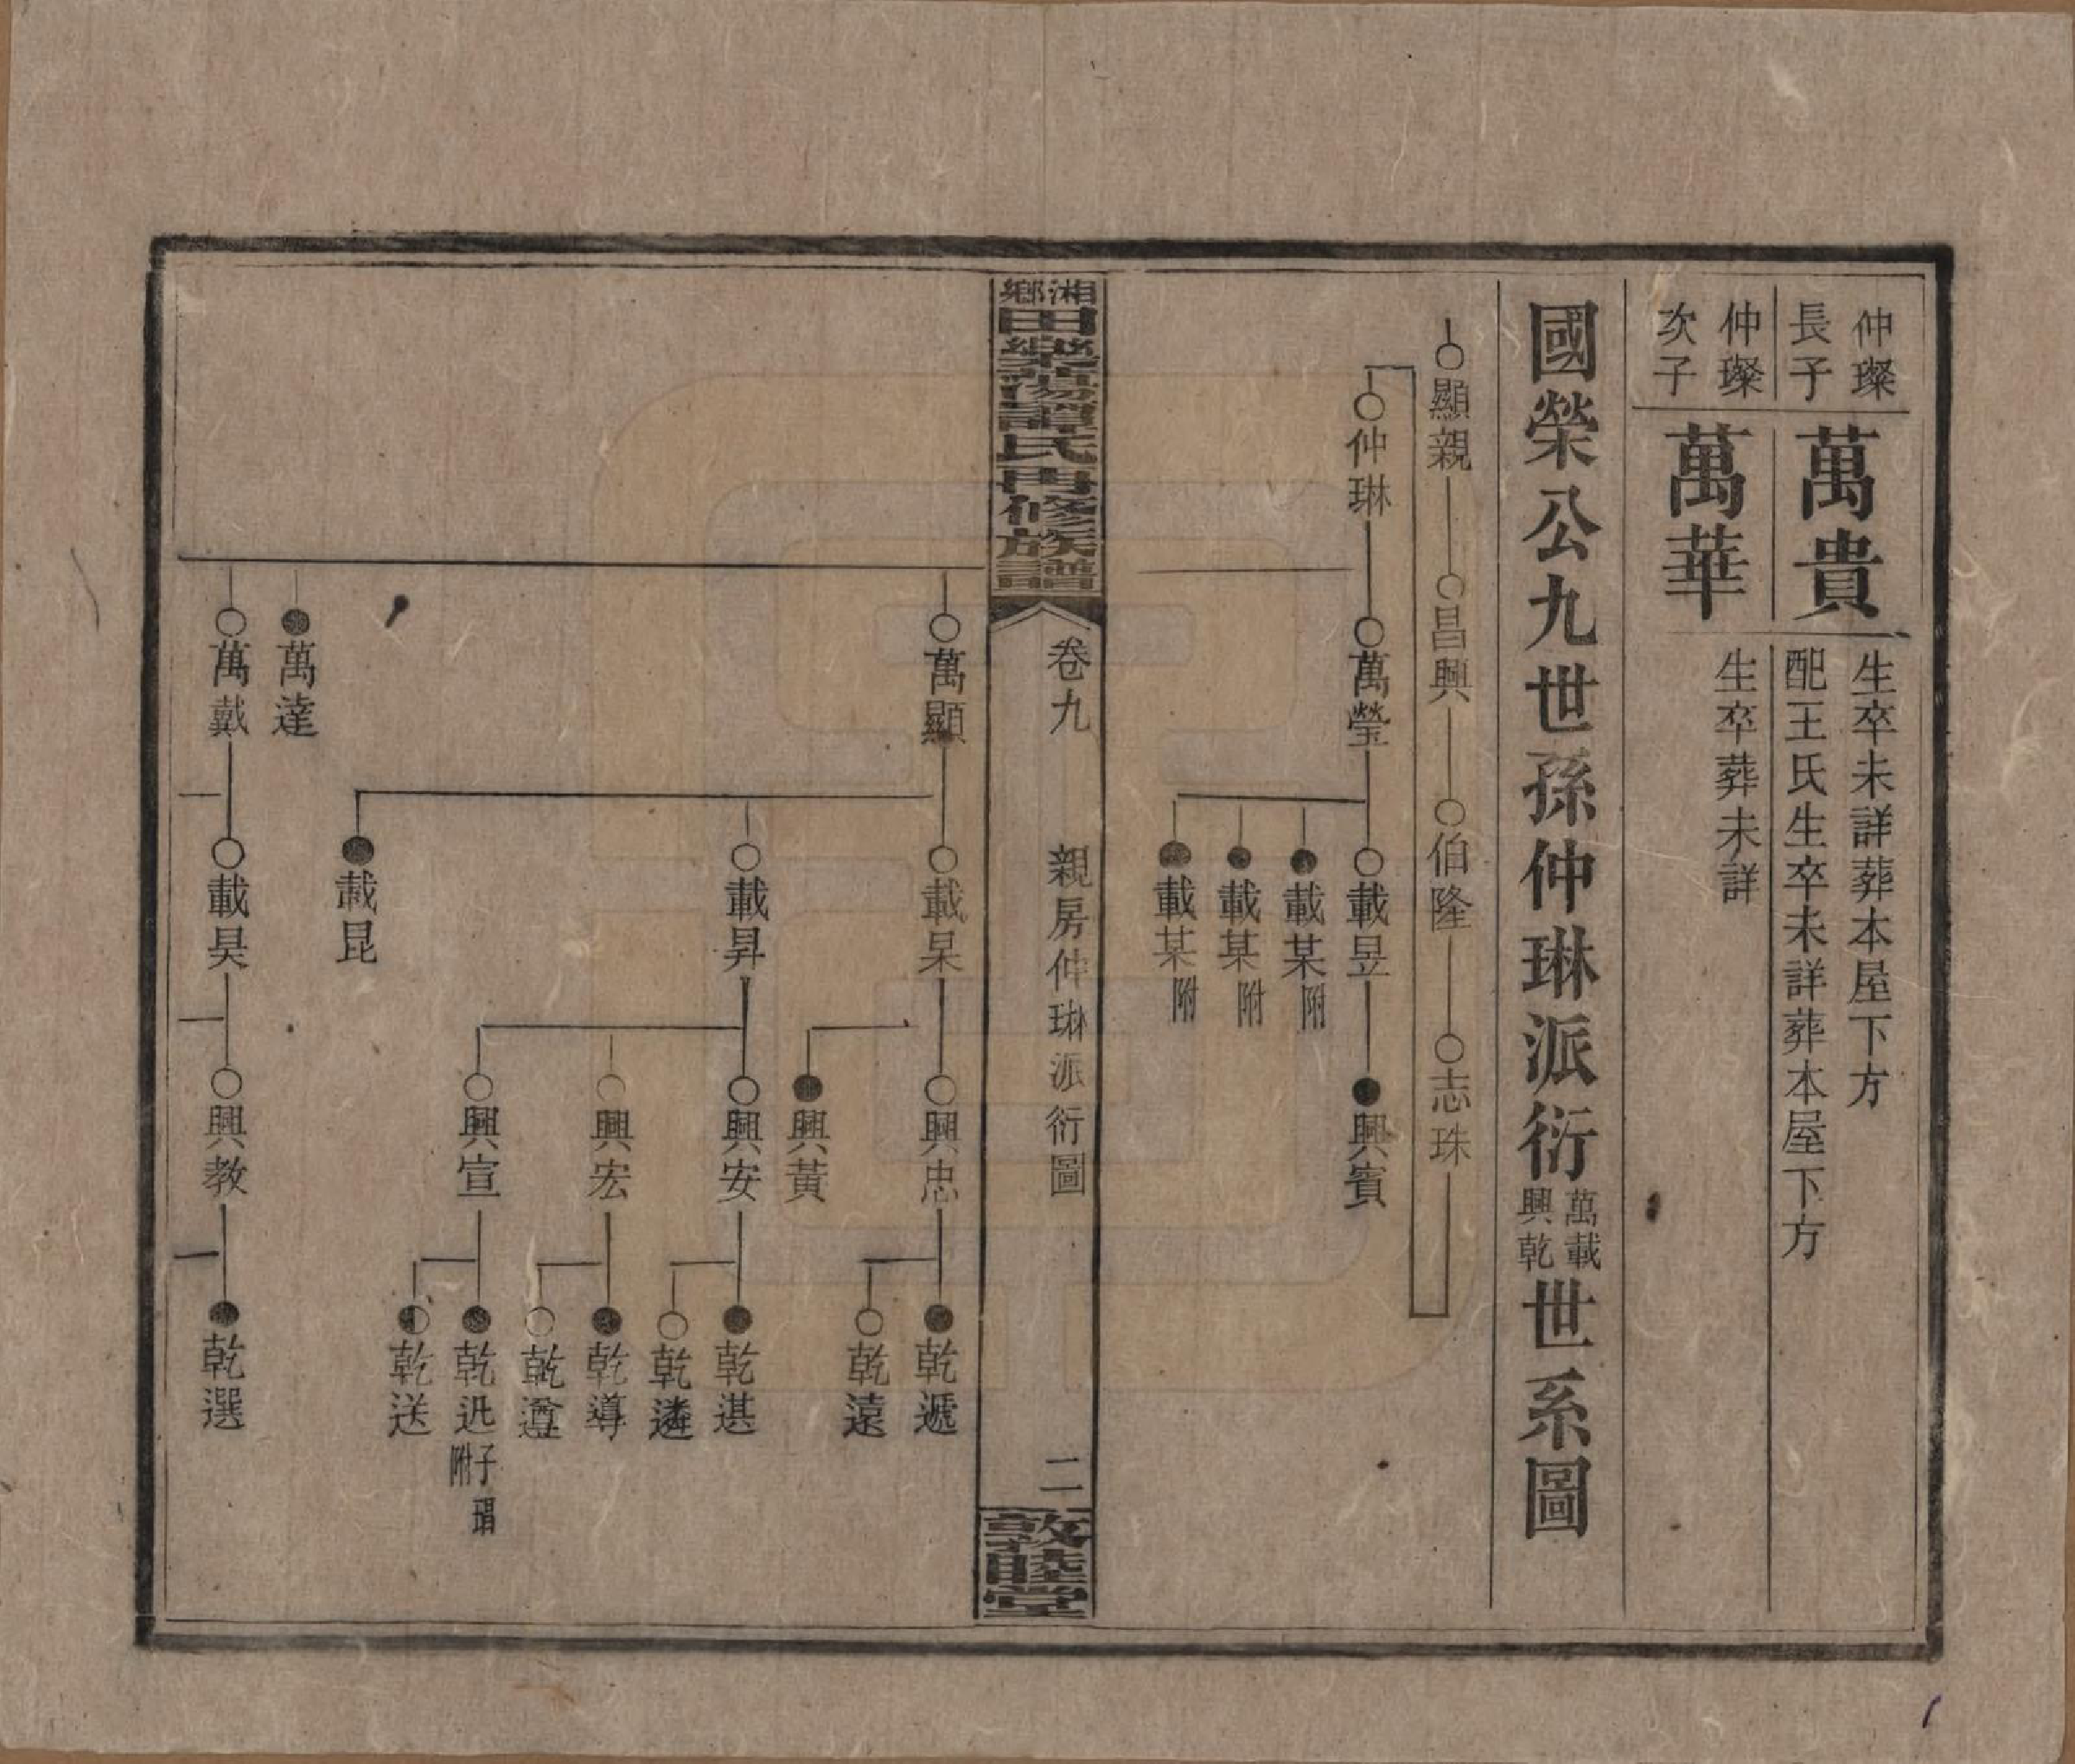 仲璨
長子
萬貴
生卒未詳葬本屋下方
配王氏生卒未詳葬本屋下方
仲璨
次子
萬華
生卒葬未詳
國榮公九世孫仲琳派衍萬載興乾世系圖
顯親
昌興
伯隆
志珠
仲琳
萬瑩
載昱
興賓
載某附
載某附
載某附
湘鄉田樂蕩譚氏再修族譜
卷九
親房仲琳派衍圖
二
敦睦堂
萬顯
載杲
興忠
乾遞
乾遠
興黃
載昇
興安
乾選
乾遴
興宏
乾導
乾遵
興宣
乾迅
子
附
瑁
乾送
載昆
萬達
萬戴
載昊
興教
乾選